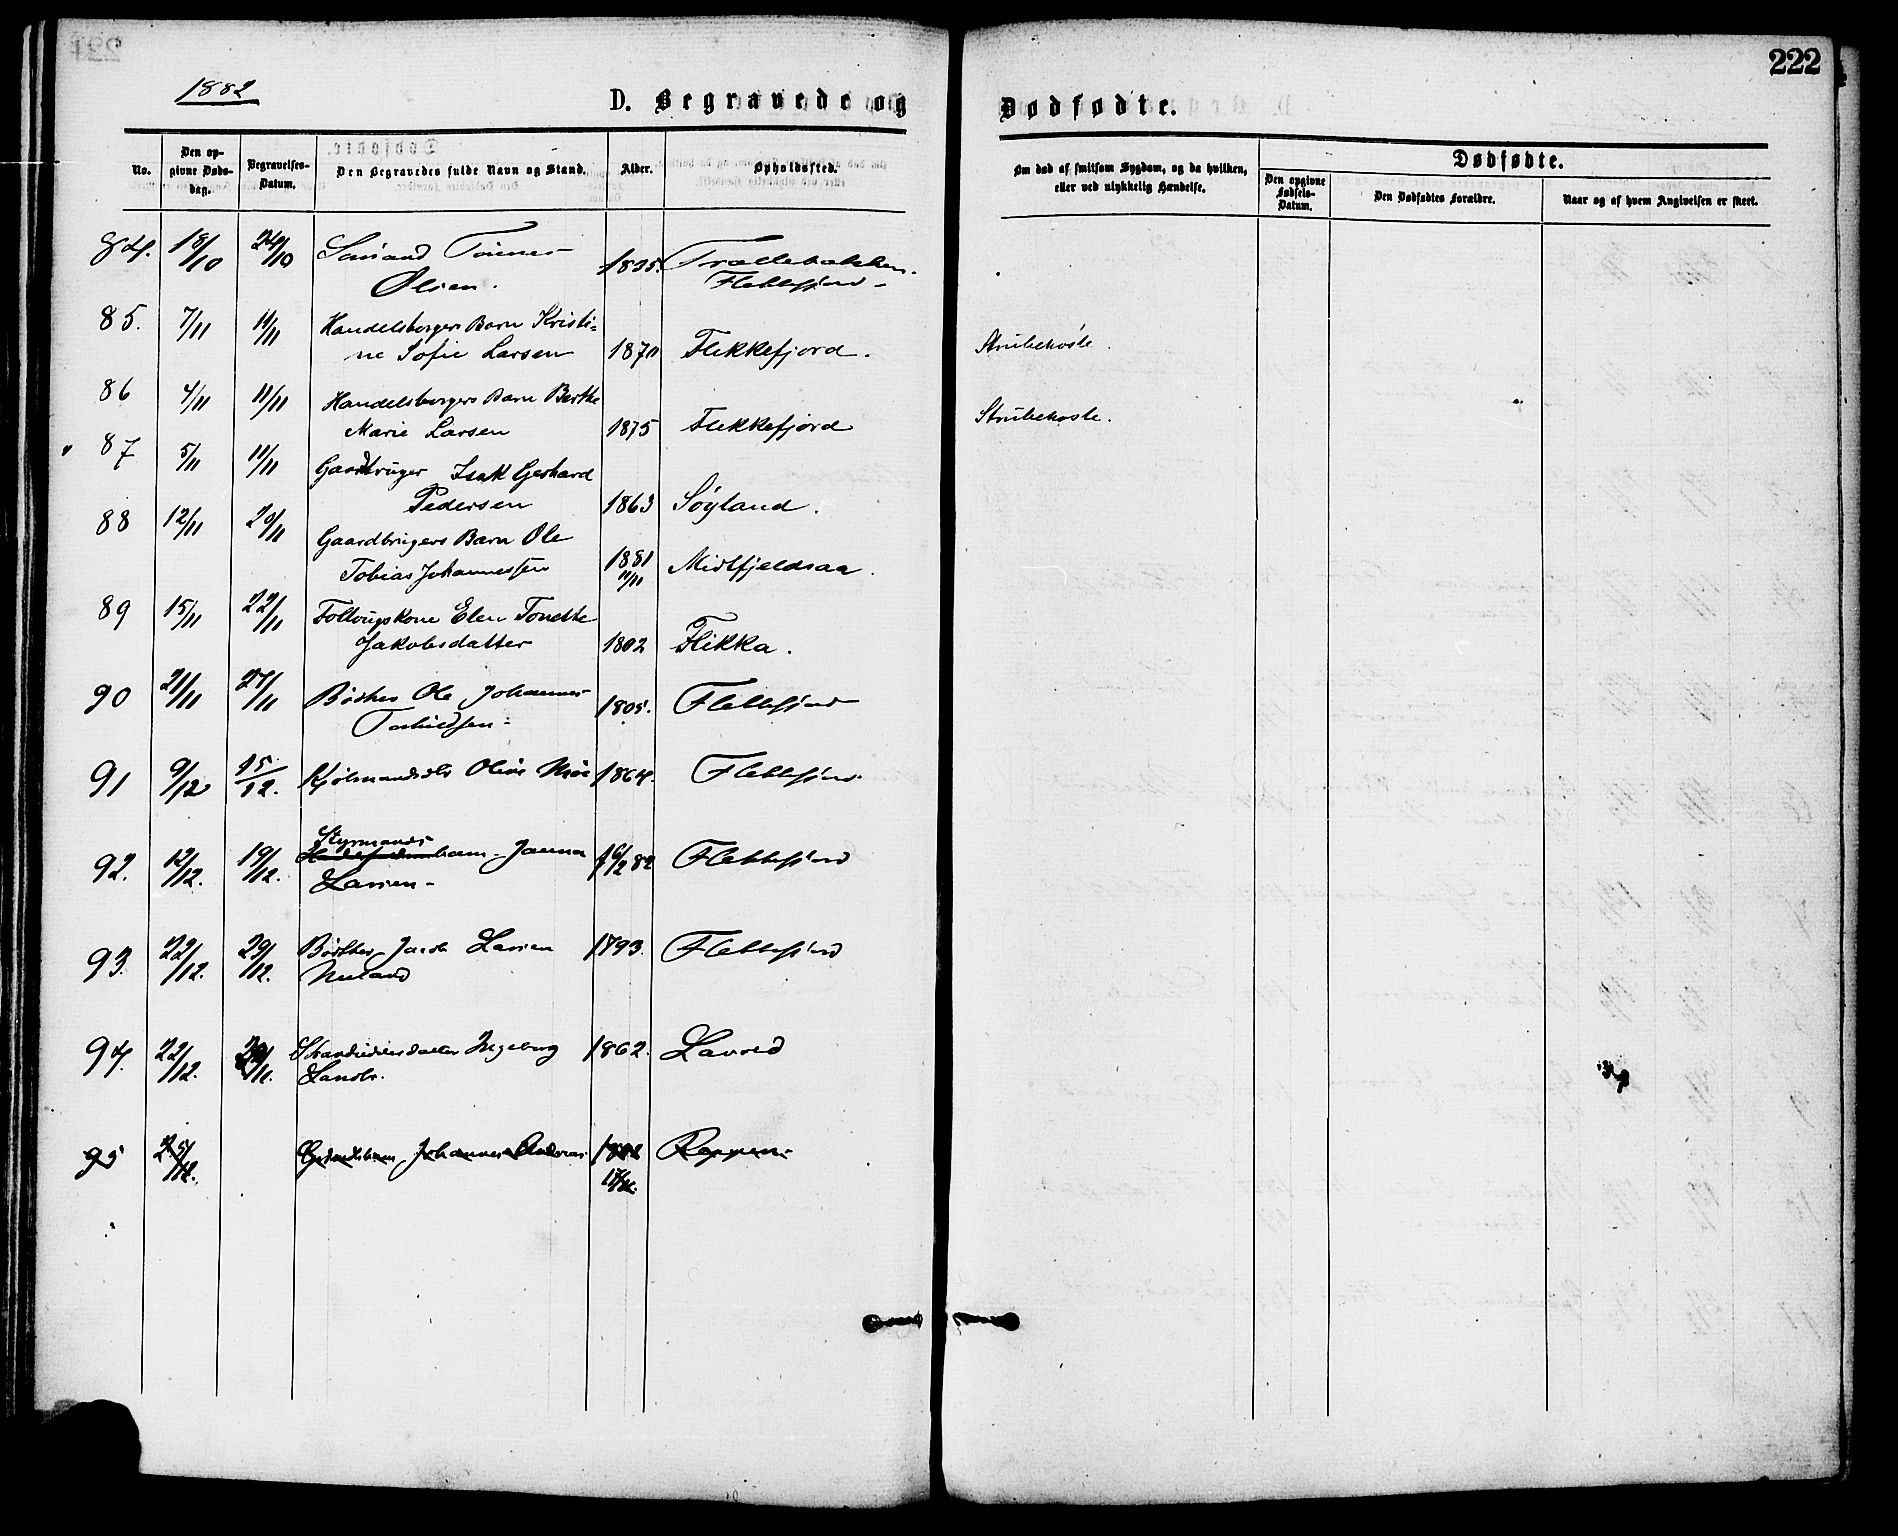 222
1882
D. Begravede og Dødfødte.
No.
Den opgivne Døds-dag.
Begravelses-Datum.
Den Begravedes fulde Navn og Stand.
Alder.
Opholdssted.
Om død af smitsom Sygdom, og da hvilken, eller ved ulykkelig Hændelse.
Dødfødte.
Den opgivne Fødsels-Datum.
Den Dødfødtes Forældre.
Naar og af hvem Angivelsen er skeet.
84. 18/10 24/10 Tønnes 1825. Trællebakken.
Olsen. Flekkefjord
85. 7/11 11/11 Handelsborgers Barn Kristi=
ne Sofie Larsen 1870 Flekkefjord. Strubehoste.
86 4/11 11/11 Handelsborgers Barn Berthe
Marie Larsen 1875 Flekkefjord Strubehoste.
87 5/11 11/11 Gaardbruger Isak Gerhard
Pedersen 1863 Søyland.
88 12/11 20/11 Gaardbrugers Barn Ole
Tobias Johannessen 1881 11/11 Midtfjeldsaa.
89 15/11 22/11 Foltrugskone Elen Tonette
Jakobsdatter 1802 Flikka.
90 21/11 27/11 Bødker Ole Johannes 1805. Flekkefjord
91 9/12 15/12. Kjøbmandsdtr Olive 1864. Flekkefjord
Styrmands
92. 12/12. 19/12. barn Janna 82 Flekkefjord
Larsen
93. 22/12. 29/12. Bødker Jacob Larsen 1793. Flekkefjord
Nuland
94. 22/12. Ingeborg 1862. Lavold
95 25/12. Johannes Andreas Reppen